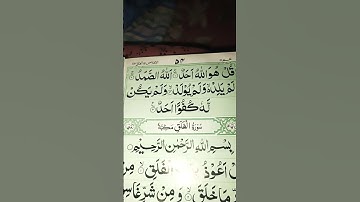 ۵۴
قُلْ هُوَ اللّٰهُ اَحَدٌ ۚ اَللّٰهُ الصَّمَدُ ۚ
لَمْ يَلِدْ ۙ وَلَمْ يُوْلَدْ ۙ وَلَمْ يَكُنْ
لَّهٗ كُفُوًا اَحَدٌ
سُوْرَةُ الْفَلَقِ مَكِّيَّةٌ
بِسْمِ اللّٰهِ الرَّحْمٰنِ الرَّحِيْمِ
اَعُوْذُ الْفَلَقِ ۙ
مَا خَلَقَ ۙ وَ مِنْ شَرِّ غَاسِ